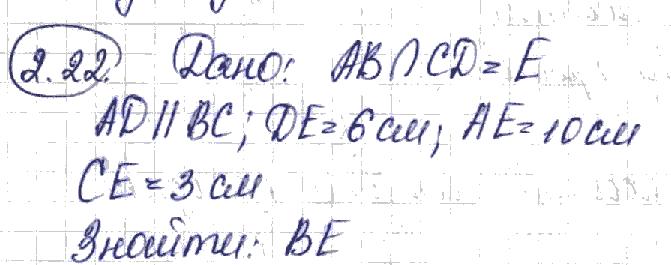 2.22. Дано: AB∩CD=E
AD||BC; DE=6см; AE=10см
CE=3 см
Знайти: BE